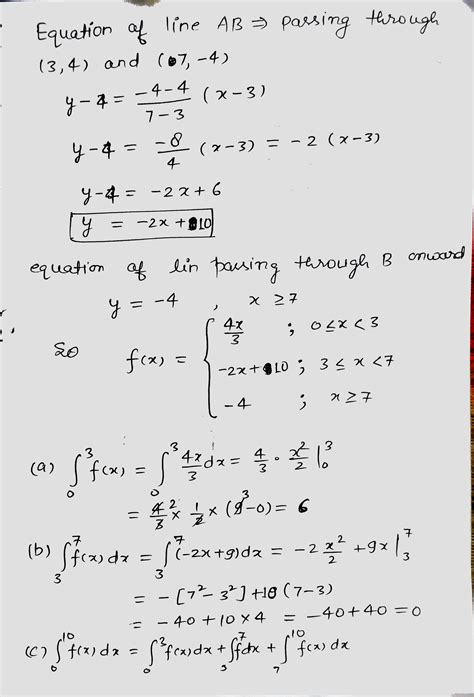 Equation of line AB ⇒ passing through
(3,4) and (7,-4)
y-4 = -4-4/7-3 (x-3)
y-4 = -8/4 (x-3) = -2 (x-3)
y-4 = -2x+6
y = -2x+10
equation of lin passing through B onward
y = -4 , x ≥ 7
So f(x) = { 4x/3 ; 0≤x<3
-2x+10 ; 3≤x<7
-4 ; x≥7
(a) ∫₀³ f(x) = ∫₀³ 4x/3 dx = 4/3 · x²/2 |₀³
= 4/3 × 1/2 × (9-0) = 6
(b) ∫₃⁷ f(x) dx = ∫₃⁷ (-2x+9)dx = -2 x²/2 + 9x |₃⁷
= -[7²-3²] +10 (7-3)
= -40+10×4 = -40+40 = 0
(c) ∫₀¹⁰ f(x) dx = ∫₀³ f(x)dx + ∫₃⁷ fdx + ∫₇¹⁰ f(x) dx